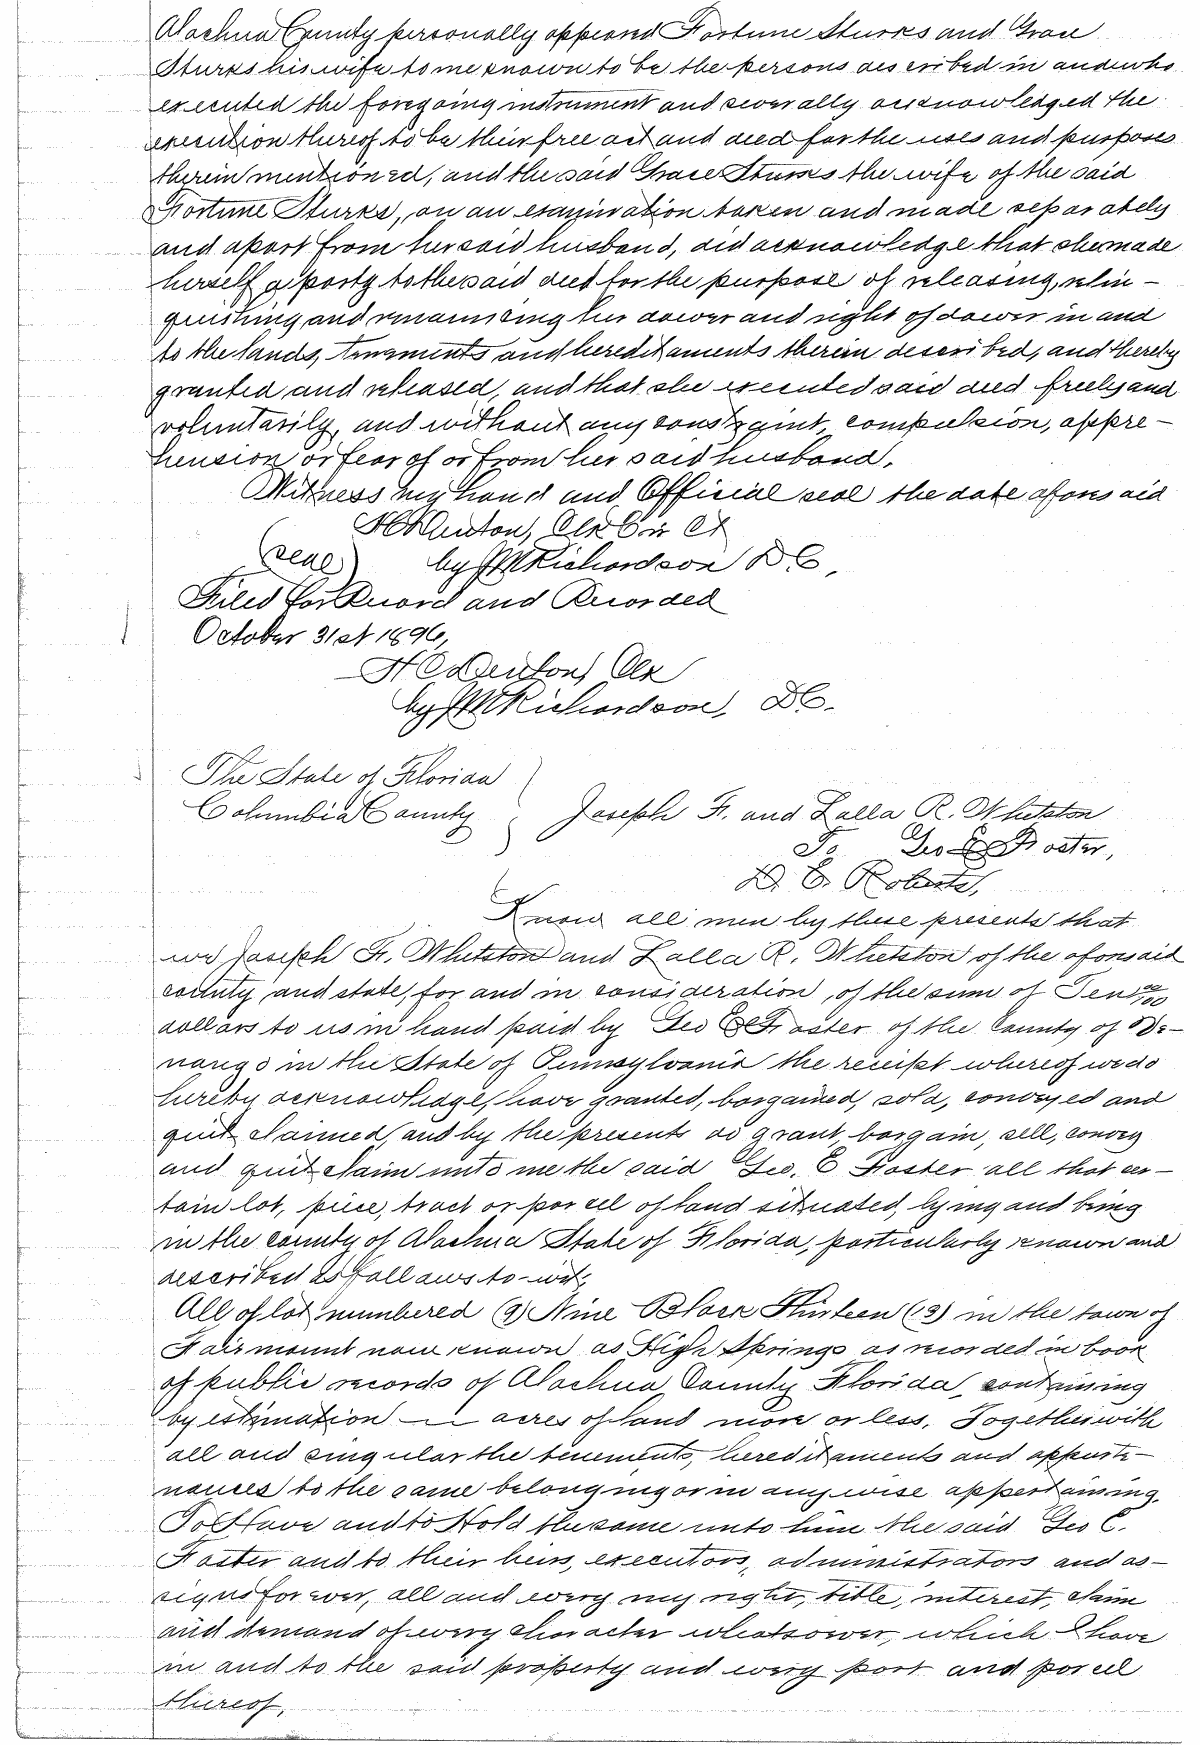 Alachua County personally appeared Fortune Sturks and Grace
Sturks his wife to me known to be the persons described in and who
executed the foregoing instrument and severally acknowledged the
execution thereof to be their free act and deed for the uses and purposes
therein mentioned, and the said Grace Sturks the wife of the said
Fortune Sturks, on an examination taken and made separately
and apart from her said husband, did acknowledge that she made
herself a party to the said deed for the purpose of releasing, relin-
quishing and renouncing her dower and right of dower in and
to the lands, tenements and hereditaments therein described, and thereby
granted and released, and that she executed said deed freely and
voluntarily, and without any constraint, compulsion, appre-
hension or fear of or from her said husband.
Witness my hand and Official seal the date aforesaid
H C Denton, Clk Cir Ct
(Seal) by J M Richardson D C,
Filed for Record and Recorded
October 31st 1896,
H C Denton, Clk
by J M Richardson, D C.
The State of Florida
Columbia County } Joseph F. and Lalla R. Whetston
To Geo E Foster,
D. E. Roberts,
Know all men by these presents that
we Joseph F. Whetston and Lalla R. Whetston of the aforesaid
county and state, for and in consideration, of the sum of Ten 00/100
dollars to us in hand paid by Geo E Foster of the County of Ve-
nango in the State of Pennsylvania the receipt whereof we do
hereby acknowledge, have granted, bargained, sold, conveyed and
quit claimed, and by the presents do grant, bargain, sell, convey
and quit claim unto me the said Geo. E Foster all that cer-
tain lot, piece, tract or parcel of land situated, lying and being
in the county of Alachua State of Florida, particularly known and
described as follows to-wit;
All of lot numbered (9) Nine Block Thirteen (13) in the town of
Fairmount now known as High Springs as recorded in book
of public records of Alachua County Florida, containing
by estimation — acres of land more or less. Together with
all and singular the tenements, hereditaments and appurte-
nances to the same belonging or in any wise appertaining.
To Have and to Hold the same unto him the said Geo E.
Foster and to their heirs, executors, administrators and as-
signs forever, all and every my right, title, interest, claim
and demand of every character whatsoever, which I have
in and to the said property and every part and parcel
thereof,